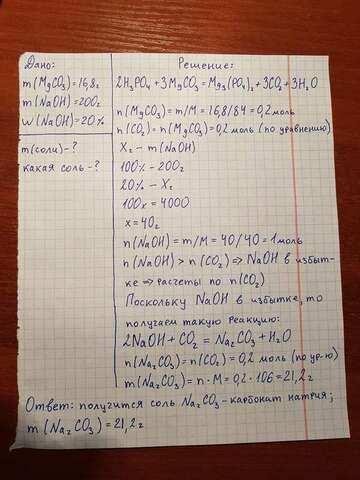 Дано:
m(MgCO₃)=16,8г
m(NaOH)=200г
w(NaOH)=20%
m(соли)-?
какая соль-?
Решение:
2H₃PO₄+3MgCO₃=Mg₃(PO₄)₂+3CO₂+3H₂O
n(MgCO₃)=m/M=16,8/84=0,2моль
n(CO₂)=n(MgCO₃)=0,2 моль (по уравнению)
Xг-m(NaOH)
100%-200г
20%-Xг
100x=4000
x=40г
n(NaOH)=m/M=40/40=1моль
n(NaOH)>n(CO₂)⇒NaOH в избыт-
ке⇒расчеты по n(CO₂)
Поскольку NaOH в избытке, то
получаем такую реакцию:
2NaOH+CO₂=Na₂CO₃+H₂O
n(Na₂CO₃)=n(CO₂)=0,2 моль (по ур-ю)
m(Na₂CO₃)=n·M=0,2·106=21,2г
Ответ: получится соль Na₂CO₃-карбонат натрия;
m(Na₂CO₃)=21,2г